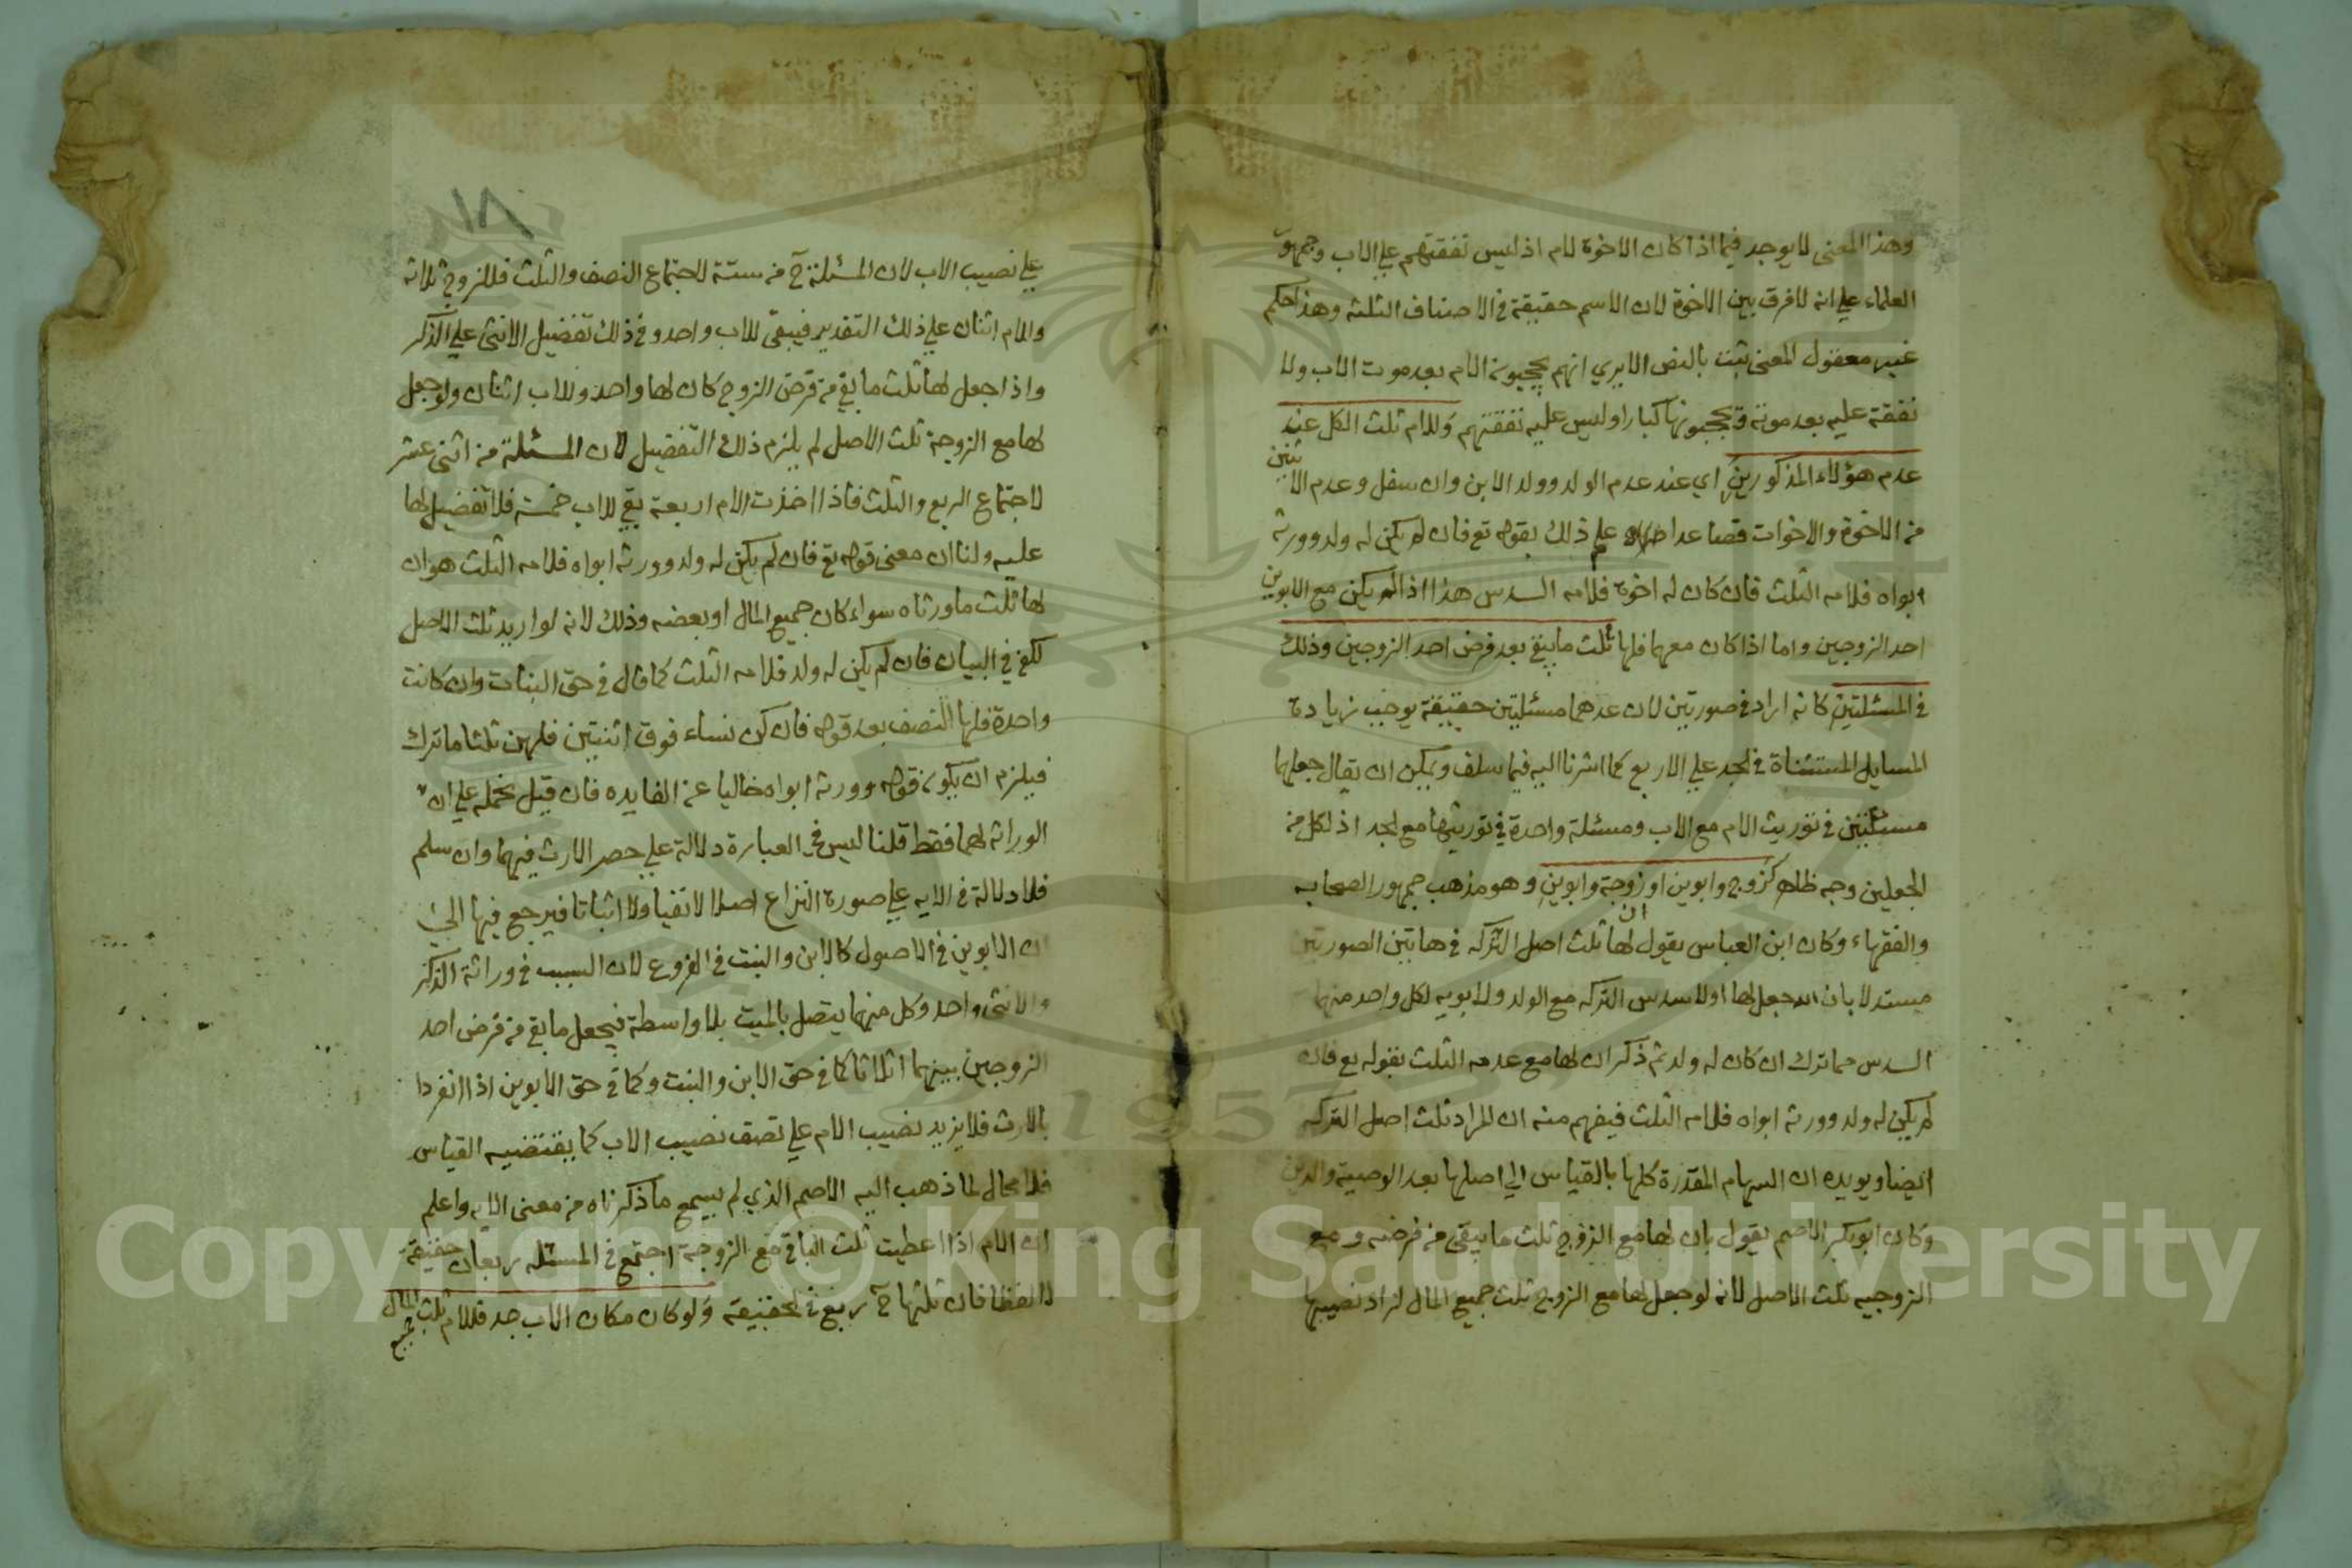 وهذا المعنى لا يوجد فيما اذا كان الاخوة لام اذ ليس نفقتهم علي الاب وجمهور
العلماء علي انه لا فرق بين الاخوة لان الاسم حقيقة في الاصناف الثلثه وهذا حكم
غير معقول المعنى ثبت بالنص الا يري انهم يحجبون الام بعد موت الاب ولا
نفقة عليه بعد موته ويحجبونها كبارا وليس عليه نفقتهم وللام ثلث الكل عند
عدم هؤلاء المذكورين اي عند عدم الولد وولد الابن وان سفل وعدم الاثنين
من الاخوة والاخوات فصاعدا علي ذلك بقوله تع فان لم يكن له ولد وورثه
ابواه فلامه الثلث فان كان له اخوة فلامه السدس هذا اذا لم يكن مع الابوين
احد الزوجين واما اذا كان معهما فلها ثلث ما يبقي بعد فرض احد الزوجين وذلك
في المسئلتين كانه اراد في صورتين لان عدهما مسئلتين حقيقة يوجب زيادة
المسايل المستثناة في الجد علي الاربع كما اشرنا اليه فيما سلف ويمكن ان يقال جعلهما
مسئلتين في توريث الام مع الاب ومسئلة واحدة في توريثها مع الجد اذ لكل من
الجعلين وجه ظاهر كزوج وابوين او زوجة وابوين وهو مذهب جمهور الصحابه
والفقهاء وكان ابن العباس يقول ان لها ثلث اصل التركه في هاتين الصورتين
مستدلا بان الله جعل لها اولا سدس التركه مع الولد ولابويه لكل واحد منهما
السدس مما ترك ان كان له ولد ثم ذكر ان لها مع عدمه الثلث بقوله تع فان
لم يكن له ولد وورثه ابواه فلامه الثلث فيفهم منه ان المراد ثلث اصل التركه
ايضا ويويده ان السهام المقدرة كلها بالقياس الي اصلها بعد الوصية والدين
وكان ابو بكر الاصم يقول بان لها مع الزوج ثلث ما يبقى من فرضه ومع
الزوجيه ثلث الاصل لانه لو جعل لها مع الزوج ثلث جميع المال لزاد نصيبها
١٨
علي نصيب الاب لان المسئلة ح من ستة لاجتماع النصف والثلث فللزوج ثلاثه
وللام اثنان علي ذلك التقدير فيبقى للاب واحد وفي ذلك تفضيل الانثى علي الذكر
واذا جعل لها ثلث ما بقي من فرض الزوج كان لها واحد وللاب اثنان ولو جعل
لها مع الزوجة ثلث الاصل لم يلزم ذلك التفضيل لان المسئلة من اثني عشر
لاجتماع الربع والثلث فاذا اخذت الام اربعة بقي للاب خمسة فلا تفضيل لها
عليه ولنا ان معنى قوله تع فان لم يكن له ولد وورثه ابواه فلامه الثلث هو ان
لها ثلث ما ورثاه سواء كان جميع المال او بعضه وذلك لانه لو اريد ثلث الاصل
لكفي في البيان فان لم يكن له ولد فلامه الثلث كما قال في حق البنات وان كانت
واحدة فلها النصف بعد قوله فان كن نساء فوق اثنتين فلهن ثلثا ما ترك
فيلزم ان يكون قوله وورثه ابواه خاليا عن الفايده فان قيل نحمله علي ان
الوراثه لهما فقط قلنا ليس في العبارة دلالة علي حصر الارث فيهما وان سلم
فلا دلالة في الايه علي صورة النزاع اصلا لا نفيا ولا اثباتا فيرجع فيها الي
ان الابوين في الاصول كالابن والبنت في الفروع لان السبب في وراثة الذكر
والانثى واحد وكل منهما يتصل بالميت بلا واسطة فيجعل ما بقي من فرض احد
الزوجين بينهما اثلاثا كما في حق الابن والبنت وكما في حق الابوين اذا انفردا
بالارث فلا يزيد نصيب الام علي نصف نصيب الاب كما يقتضيه القياس
فلا مجال لما ذهب اليه الاصم الذي لم يسمع ما ذكرناه من معنى الايه واعلم
ان الام اذا اعطيت ثلث الباقي مع الزوجة اجتمع في المسئله ربعان حقيقة
لا لفظا فان ثلثها ح ربع في الحقيقة ولو كان مكان الاب جد فللام ثلث جميع المال
Copyright © King Saud University
1957